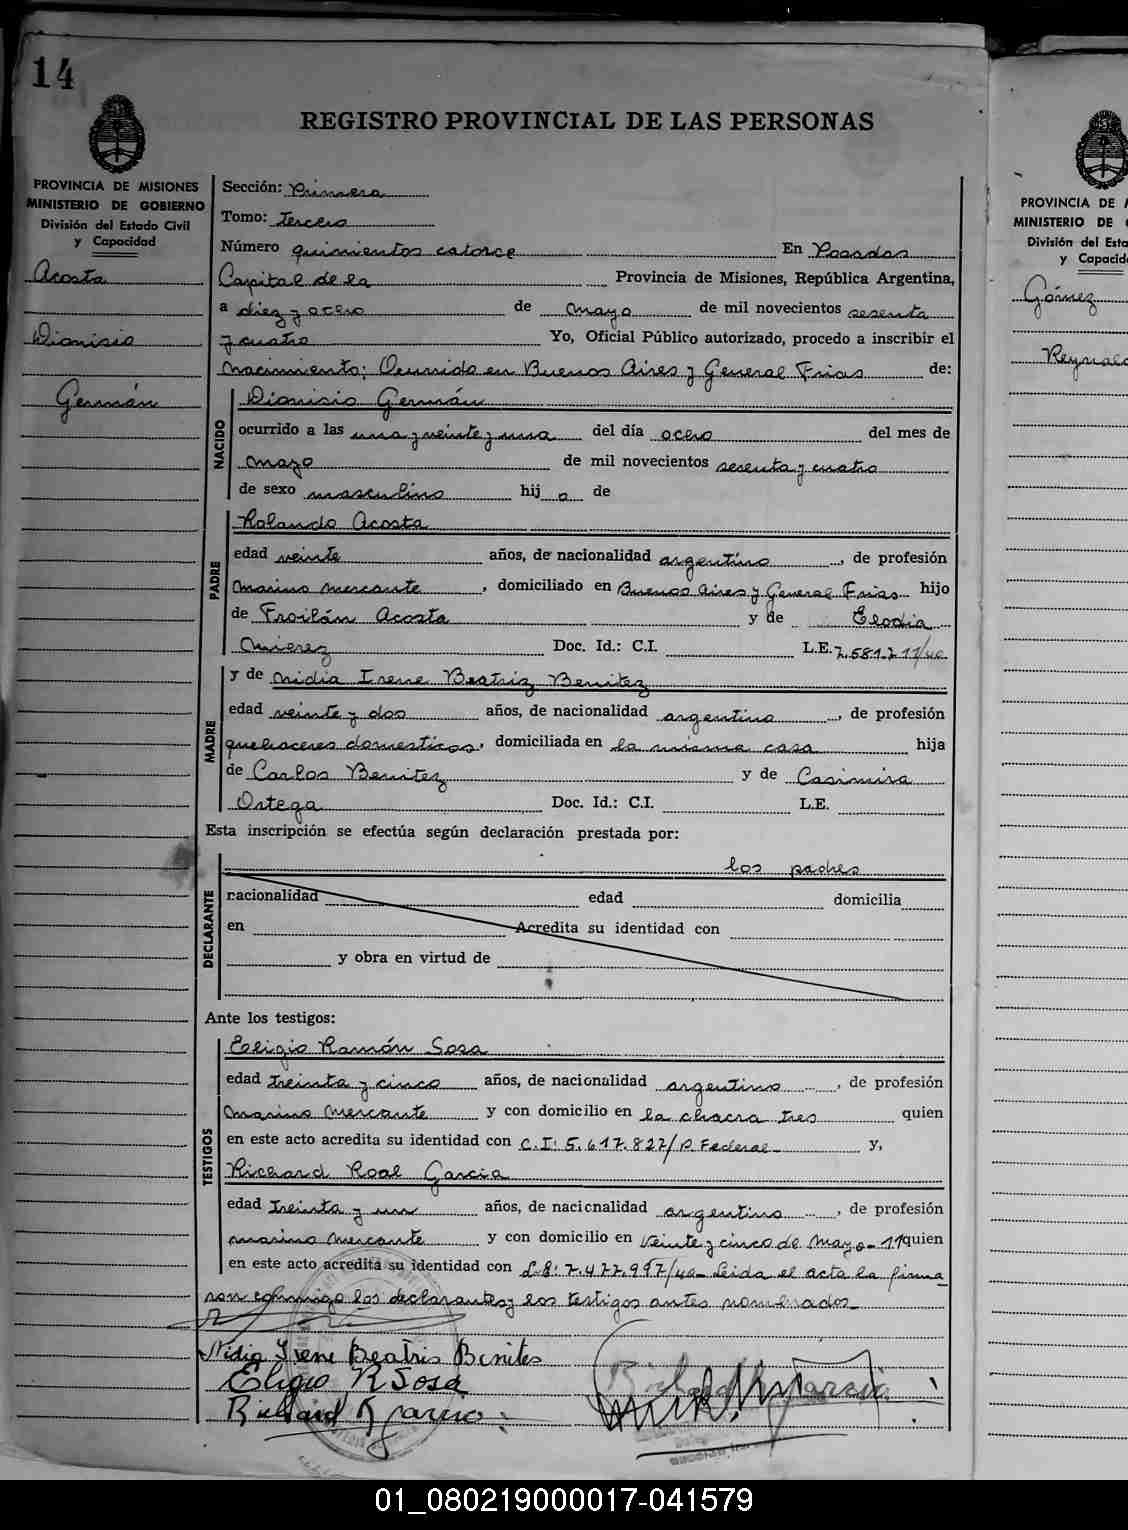 14
REGISTRO PROVINCIAL DE LAS PERSONAS
PROVINCIA DE MISIONES
MINISTERIO DE GOBIERNO
División del Estado Civil
y Capacidad
Acosta
Dionisio
Germán
Sección: Primera
Tomo: Tercero
Número quinientos catorce En Posadas
Capital de la Provincia de Misiones, República Argentina,
a diez y ocho de mayo de mil novecientos sesenta
y cuatro Yo, Oficial Público autorizado, procedo a inscribir el
nacimiento: Ocurrido en Buenos Aires y General Frias de:
NACIDO
Dionisio Germán
ocurrido a las una y veinte y una del día ocho del mes de
mayo de mil novecientos sesenta y cuatro
de sexo masculino hij o de
PADRE
Rolando Acosta
edad veinte años, de nacionalidad argentino, de profesión
marino mercante, domiciliado en Buenos Aires y General Frias hijo
de Froilán Acosta y de Elodia
Doc. Id.: C.I. L.E. 7.581.211/40
MADRE
y de Nidia Irene Beatriz Benitez
edad veinte y dos años, de nacionalidad argentina, de profesión
quehaceres domesticos, domiciliada en la misma casa hija
de Carlos Benitez y de Casimira
Ortega Doc. Id.: C.I. L.E.
Esta inscripción se efectúa según declaración prestada por:
DECLARANTE
los padres
nacionalidad edad domicilia
en Acredita su identidad con
y obra en virtud de
Ante los testigos:
TESTIGOS
Eligio Ramón Sosa
edad treinta y cinco años, de nacionalidad argentino, de profesión
marino mercante y con domicilio en la chacra tres quien
en este acto acredita su identidad con C.I: 5.617.827/P. Federal y,
Richard Roal Garcia
edad treinta y un años, de nacionalidad argentino, de profesión
marino mercante y con domicilio en Veinte y cinco de Mayo-11 quien
en este acto acredita su identidad con L.E: 7.477.997/40- Leida el acta la firma
ron conmigo los declarantes y los testigos antes nombrados-
Nidia Irene Beatris Benites
Eligio R Sosa
Richard R Garcia
PROVINCIA DE
MINISTERIO DE
División del Esta
y Capacid
Gómez
Reynald
01_080219000017-041579